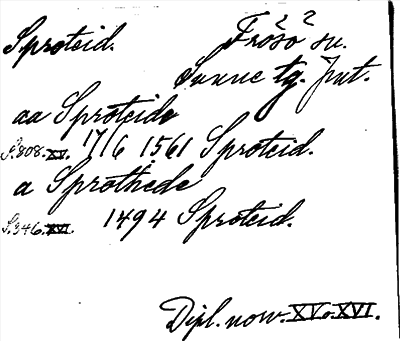 Sproteid. Frösö sn.
Sunne tg. Jmt.
aa Sproteide
S. 808. XV. 17/6 1561 Sproteid.
a Sprothede
S. 346. XVI. 1494 Sproteid.
Dipl. norv. XV o. XVI.